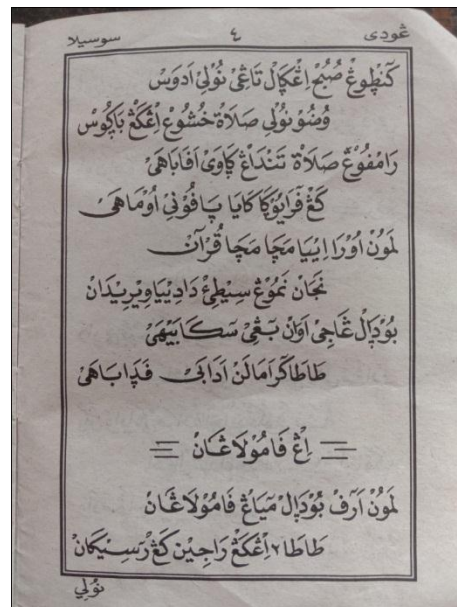 ڠودى ٤ سوسيلا
كَنْڟَوڠْ صُبُحْ اِڠْڮَالْ تَاڠِيْ نُوْلِيْ اَدَوسْ
وُضُوْ نُوْلِيْ صَلَاةْ خُشُوْعْ اِڠْكَڠْ بَاڮُوسْ
رَامْفُوْڠْ صَلَاةْ تَنْدَاڠْ ڮَاوَيْ اَفَابَاهَيْ
كَڠْ فَرَايَوْڮَا كَايَا ڽَافُوْنِيْ اَوْمَاهَيْ
لَمَوْنْ اَوْرَا اِيْيَا مَچَا مَچَا قُرْآنْ
نَجَانْ نَمُوْڠْ سِيْطِئْ دَادِيْيَا وِيْرِيْدَانْ
بُوْدَالْ ڠَاجِيْ اَوَانْ بَڠِيْ سَكَابَيْهَيْ
طَاطَا كْرَامَا لَنْ اَدَابَيْ فَڎَابَاهَيْ
اِڠْ فَامُوْلَاڠَانْ
لَمَوْنْ اَرَفْ بُوْدَالْ مْيَاڠْ فَامُوْلَاڠَانْ
طَاطَا٢ اِڠْكَڠْ رَاجِيْنْ كَڠْ رَسِيْكَانْ
نُوْلِي